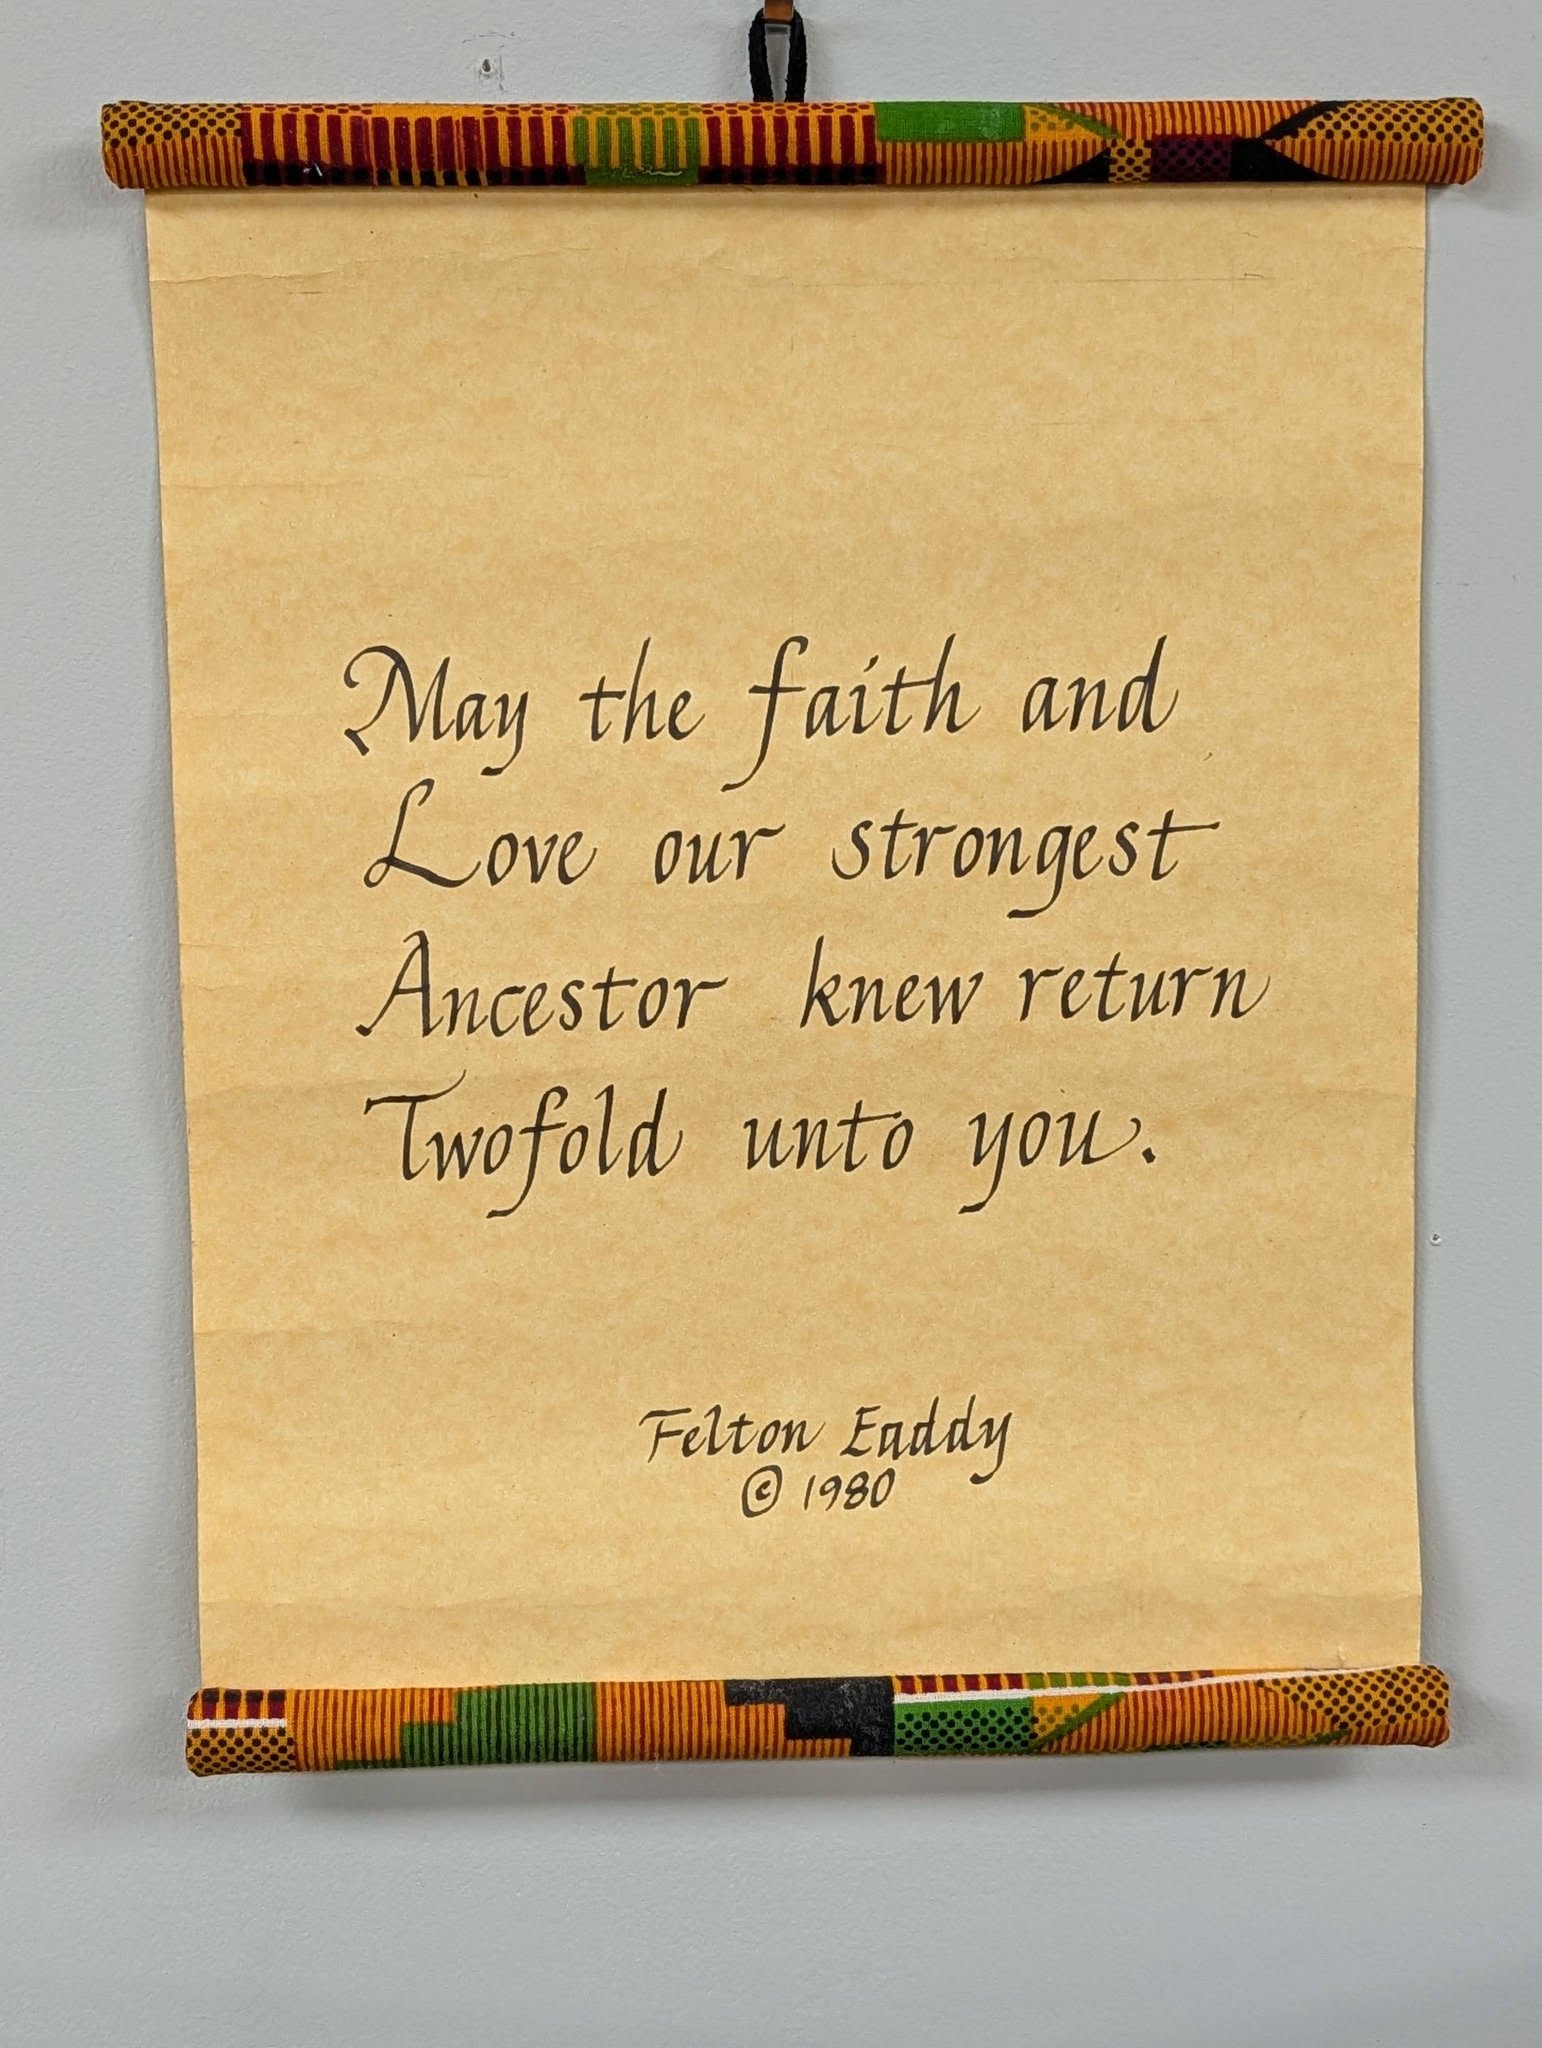 May the faith and
Love our strongest
Ancestor knew return
Twofold unto you.
Felton Eaddy
© 1980